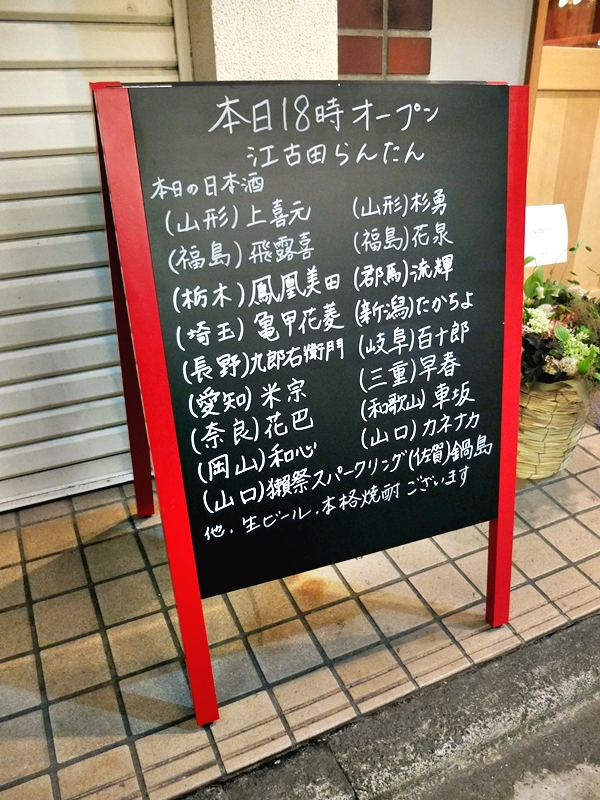 本日18時オープン
江古田らんたん
本日の日本酒
(山形)上喜元 (山形)杉勇
(福島)飛露喜 (福島)花泉
(栃木)鳳凰美田 (群馬)流輝
(埼玉)亀甲花菱 (新潟)たかちよ
(長野)九郎右衛門 (岐阜)百十郎
(愛知)米宗 (三重)早春
(奈良)花巴 (和歌山)車坂
(岡山)和心 (山口)カネナカ
(山口)獺祭スパークリング(佐賀)鍋島
他、生ビール、本格焼酎ございます